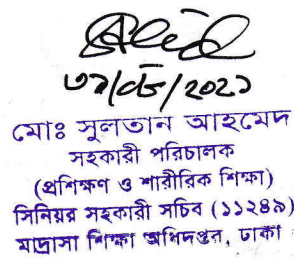 মোঃ সুলতান আহমেদ
সহকারী পরিচালক
(প্রশিক্ষণ ও শারীরিক শিক্ষা)
সিনিয়র সহকারী সচিব (১১২৪৯)
মাদ্রাসা শিক্ষা অধিদপ্তর, ঢাকা